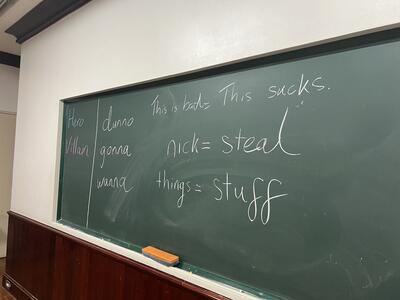 Hero
Villain
dunno
gonna
wanna
This is bad= This sucks.
nick= steal
things= stuff